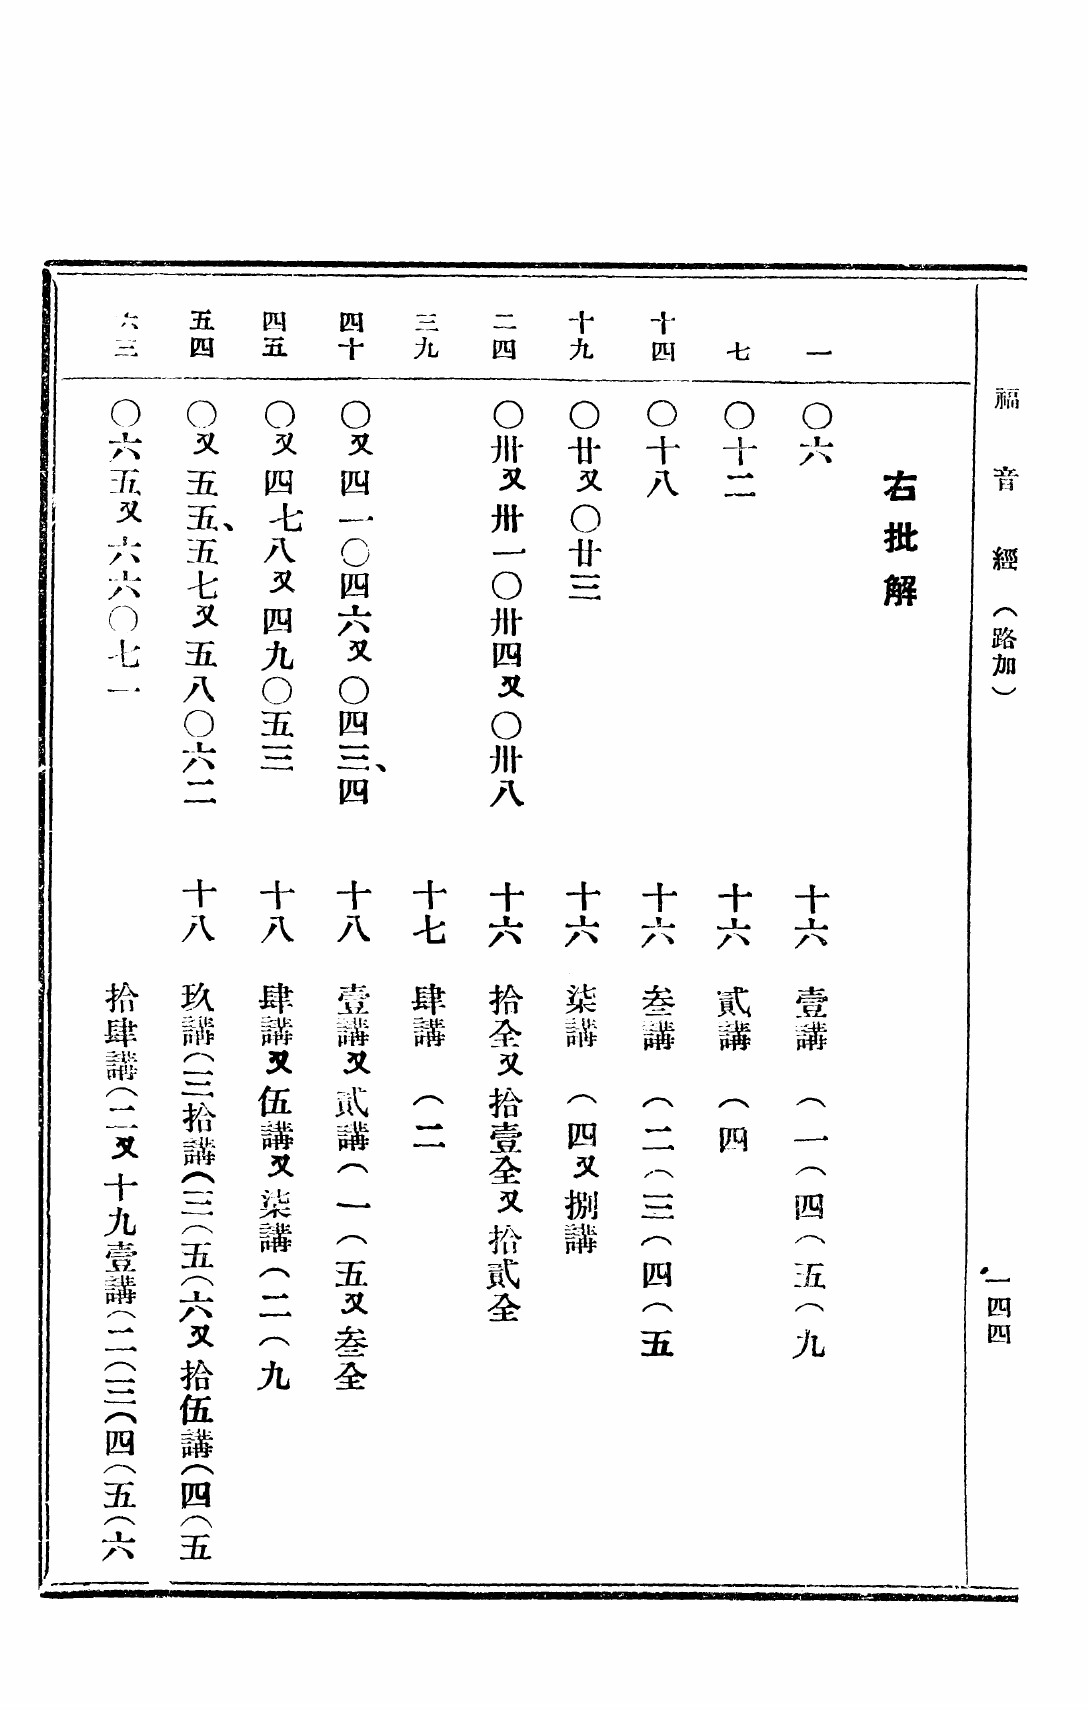 福音經（路加）
一四四
右批解
一 〇六 十六 壹講（一（四（五（九
七 〇十二 十六 貳講（四
十四 〇十八 十六 叁講（二（三（四（五
十九 〇廿又〇廿三 十六 柒講（四又捌講
二四 〇卅又卅一〇卅四又〇卅八 十六 拾全又拾壹全又拾貳全
三九 十七 肆講（二
四十 〇又四一〇四六又〇四三、四 十八 壹講又貳講（一（五又叁全
四五 〇又四七八又四九〇五三 十八 肆講又伍講又柒講（二（九
五四 〇又五五、五七又五八〇六二 十八 玖講（三拾講（三（五（六又拾伍講（四（五
六三 〇六五又六六〇七一 拾肆講（二又十九壹講（二（三（四（五（六